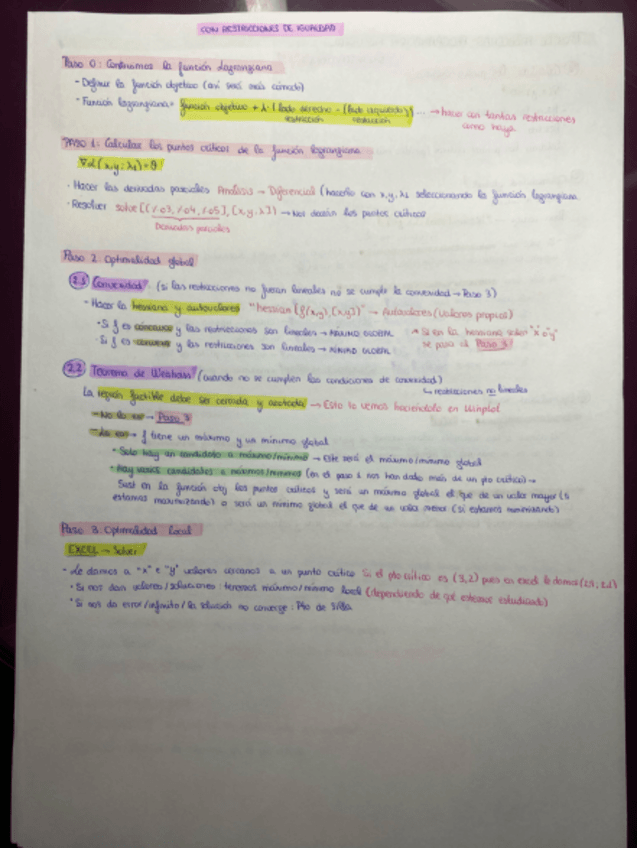 CON RESTRICCIONES DE IGUALDAD
Paso 0: Construimos la función Lagrangiana
- Definir la función objetivo (así será más cómodo)
- Función lagrangiana = función objetivo + λ·(lado derecho - (lado izquierdo)) ... → hacer con tantas restricciones
restricción restricción como haya
PASO 1: Calcular los puntos críticos de la función lagrangiana
∇L(x,y;λ1)=0
· Hacer las derivadas parciales Análisis → Diferencial (hacerlo con x,y,λ1 seleccionando la función lagrangiana
· Resolver solve[(/03,/04,/05],[x,y,λ]) → Nos darán los puntos críticos
Derivadas parciales
Paso 2. Optimalidad global
2.1 Convexidad. (si las restricciones no fueran lineales no se cumple la convexidad → Paso 3)
- Hacer la hessiana y autovalores "hessian (f(x,y),[x,y])" → Autovalores (valores propios)
· Si f es cóncava y las restricciones son lineales → MÁXIMO GLOBAL * Si en la hessiana salen "x" o "y"
· Si f es convexa y las restricciones son lineales → MÍNIMO GLOBAL se pasa al Paso 3
2.2 Teorema de Weierstrass (cuando no se cumplen las condiciones de convexidad)
↳ restricciones no lineales
La región factible debe ser cerrada y acotada → Esto lo vemos haciéndolo en Winplot
- No lo es → Paso 3
- Lo es → f tiene un máximo y un mínimo global
· Solo hay un candidato a máximo/mínimo → Este será el máximo/mínimo global
· Hay varios candidatos a máximos/mínimos (en el paso 1 nos han dado más de un pto crítico) →
Sust en la función obj los puntos críticos y será un máximo global el que de un valor mayor (si
estamos maximizando) o será un mínimo global el que de un valor menor (si estamos minimizando)
Paso 3. Optimalidad local
EXCEL → Solver
- Le damos a "x" e "y" valores cercanos a un punto crítico Si el pto crítico es (3,2) pues en excel le damos (2,9; 2,1)
· Si nos dan valores/soluciones: tenemos máximo/mínimo local (dependiendo de qué estemos estudiando)
· Si nos da error/infinito/la solución no converge: Pto de Silla